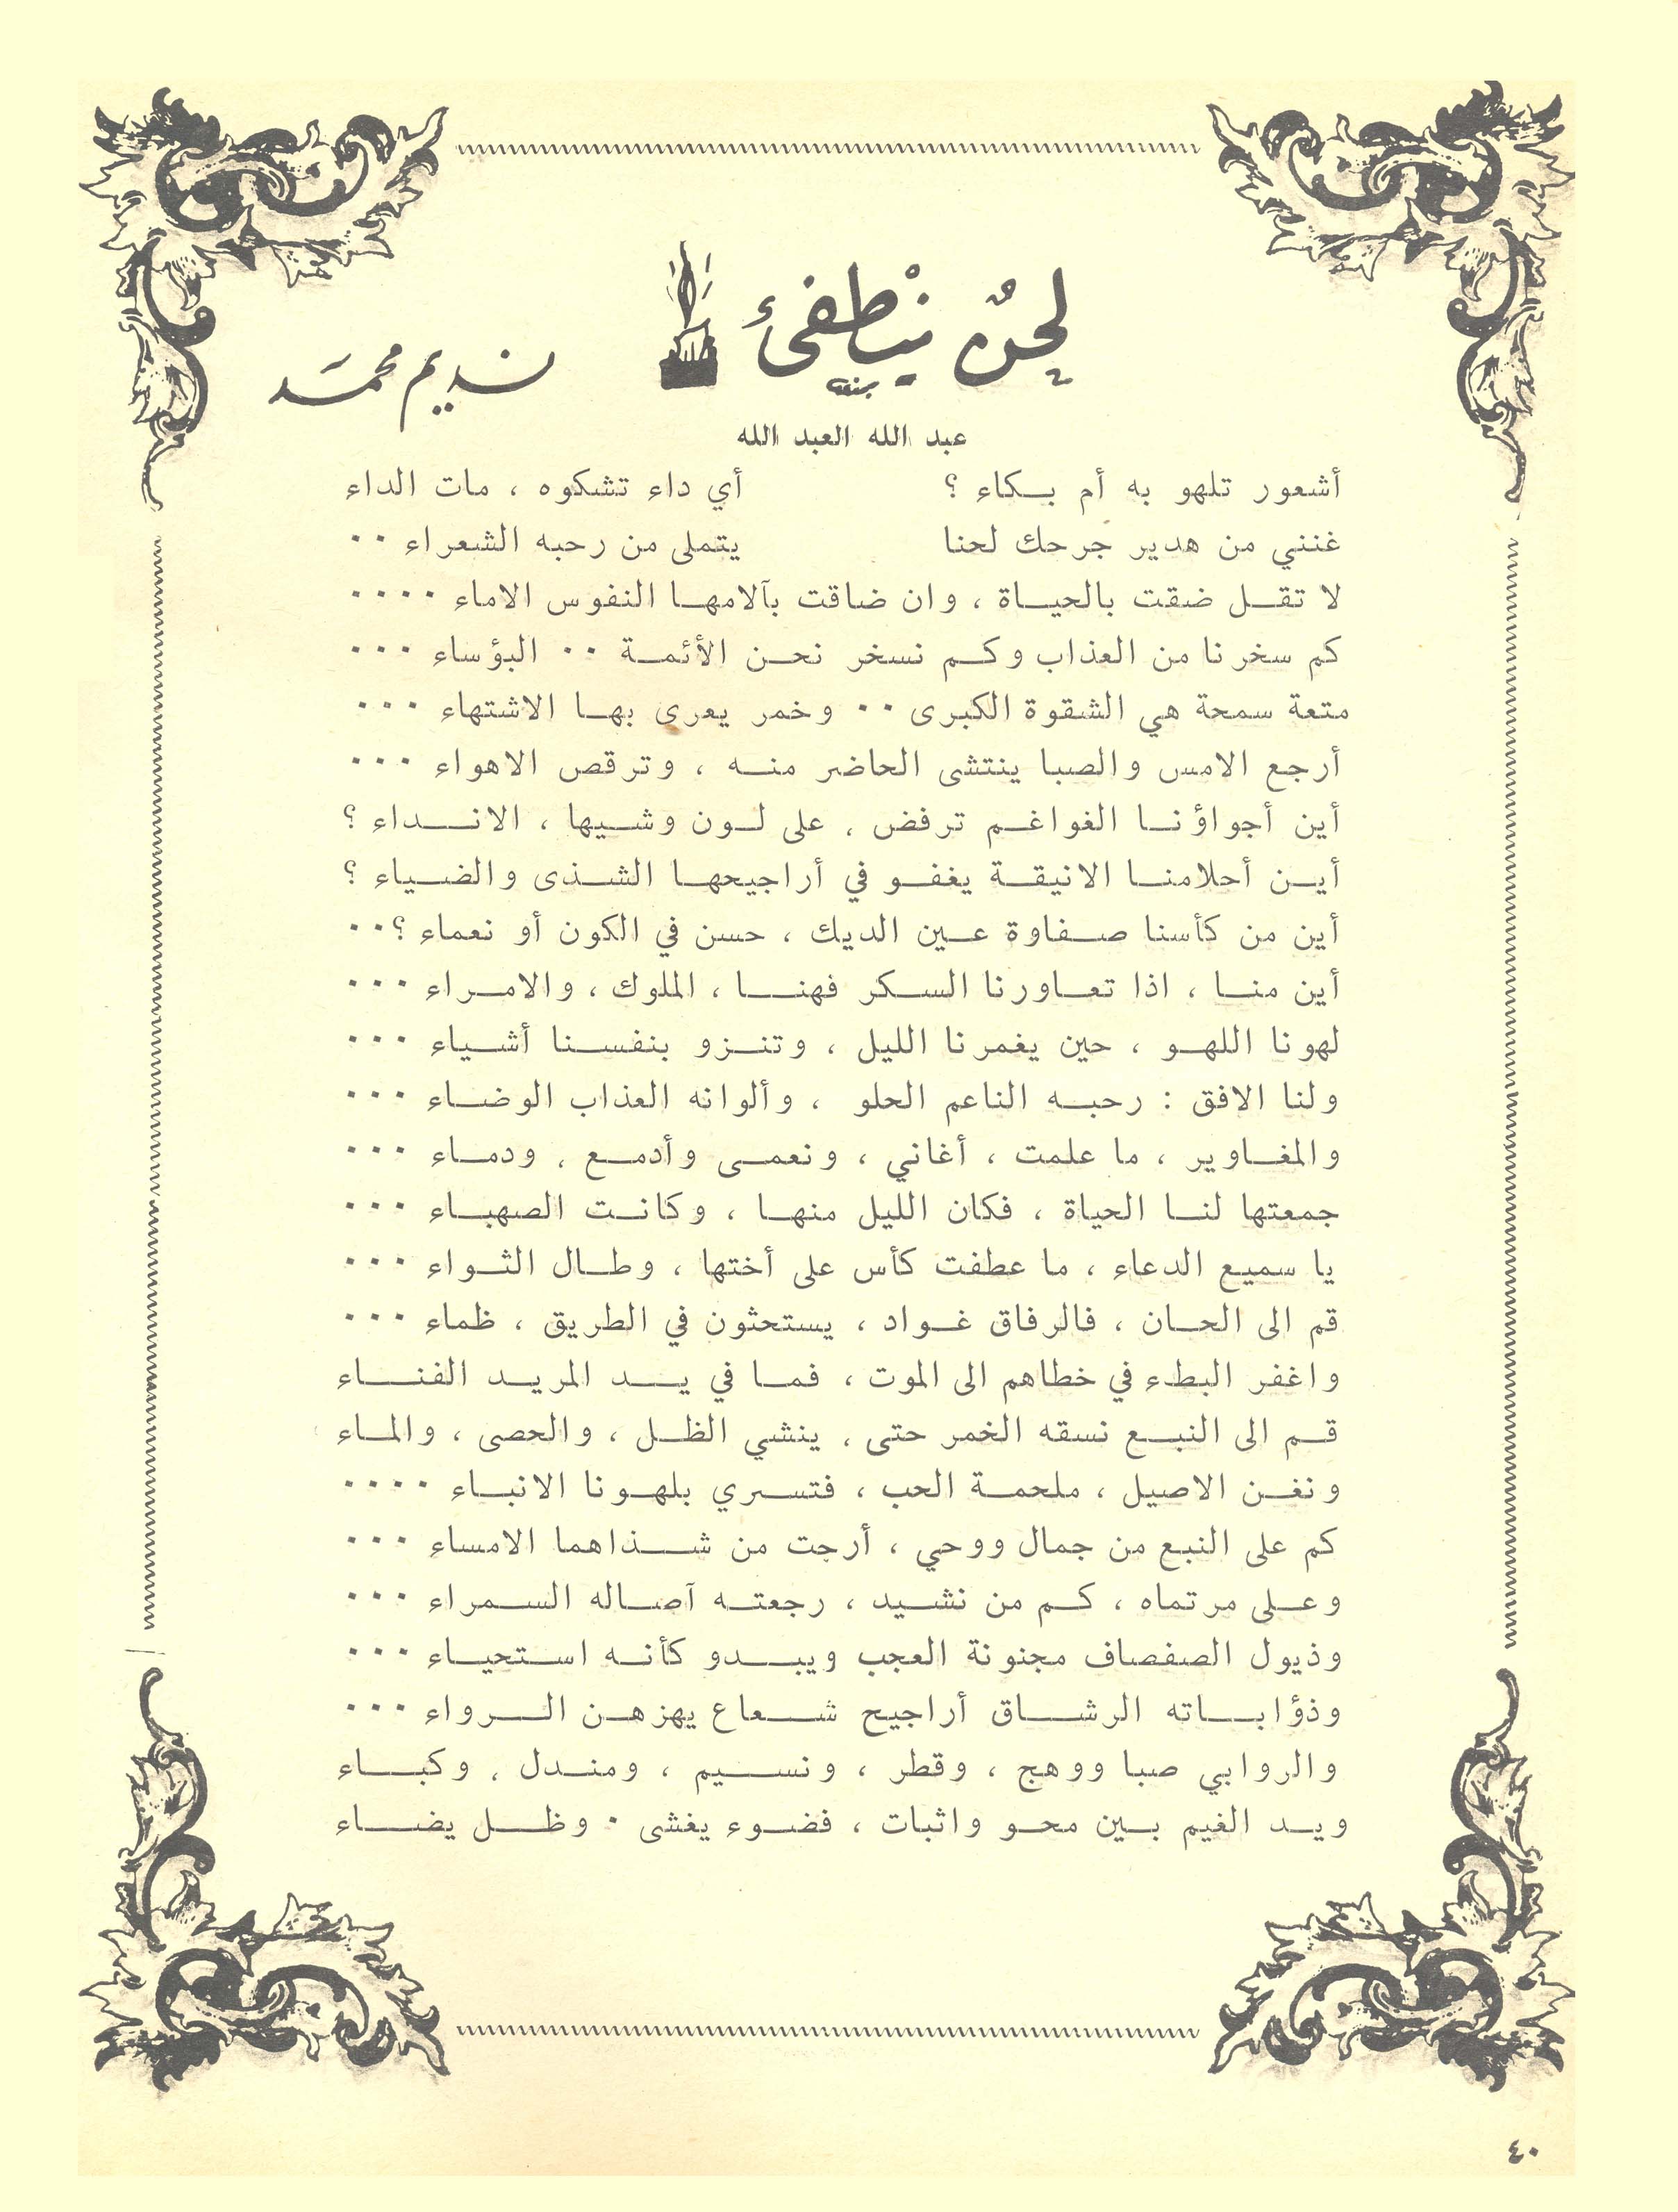 لحنٌ ينْطفئ
بقلم
نديم محمَّد
عبد الله العبد الله
أشعور تلهو به أم بكاء ؟ أي داء تشكوه ، مات الداء
غنني من هدير جرحك لحنا يتملى من رحبه الشعراء ٠٠
لا تقل ضقت بالحياة ، وان ضاقت بآلامها النفوس الاماء ٠٠٠٠
كم سخرنا من العذاب وكم نسخر نحن الأئمة ٠٠ البؤساء ٠٠٠
متعة سمحة هي الشقوة الكبرى ٠٠ وخمر يعرى بها الاشتهاء ٠٠٠
أرجع الامس والصبا ينتشى الحاضر منه ، وترقص الاهواء ٠٠٠
أين أجواؤنا الغواغم ترفض ، على لون وشيها ، الانداء ؟
أين أحلامنا الانيقة يغفو في أراجيحها الشذى والضياء ؟
أين من كأسنا صفاوة عين الديك ، حسن في الكون أو نعماء ؟٠٠
أين منا ، اذا تعاورنا السكر فهنا ، الملوك ، والامراء ٠٠٠
لهونا اللهو ، حين يغمرنا الليل ، وتنزو بنفسنا أشياء ٠٠٠
ولنا الافق : رحبه الناعم الحلو ، وألوانه العذاب الوضاء ٠٠٠
والمغاوير ، ما علمت ، أغاني ، ونعمى وأدمع ، ودماء ٠٠٠
جمعتها لنا الحياة ، فكان الليل منها ، وكانت الصهباء ٠٠٠
يا سميع الدعاء ، ما عطفت كأس على أختها ، وطال الثواء ٠٠٠
قم الى الحان ، فالرفاق غواد ، يستحثون في الطريق ، ظماء ٠٠٠
واغفر البطء في خطاهم الى الموت ، فما في يد المريد الفناء
قم الى النبع نسقه الخمر حتى ، ينشي الظل ، والحصى ، والماء
ونغن الاصيل ، ملحمة الحب ، فتسري بلهونا الانباء ٠٠٠٠
كم على النبع من جمال ووحي ، أرجت من شذاهما الامساء ٠٠٠
وعلى مرتماه ، كم من نشيد ، رجعته آصاله السمراء ٠٠٠
وذيول الصفصاف مجنونة العجب ويبدو كأنه استحياء ٠٠٠
وذؤاباته الرشاق أراجيح شعاع يهزهن الرواء ٠٠٠
والروابي صبا ووهج ، وقطر ، ونسيم ، ومندل ، وكباء
ويد الغيم بين محو واثبات ، فضوء يغشى ٠ وظل يضاء
٤٠